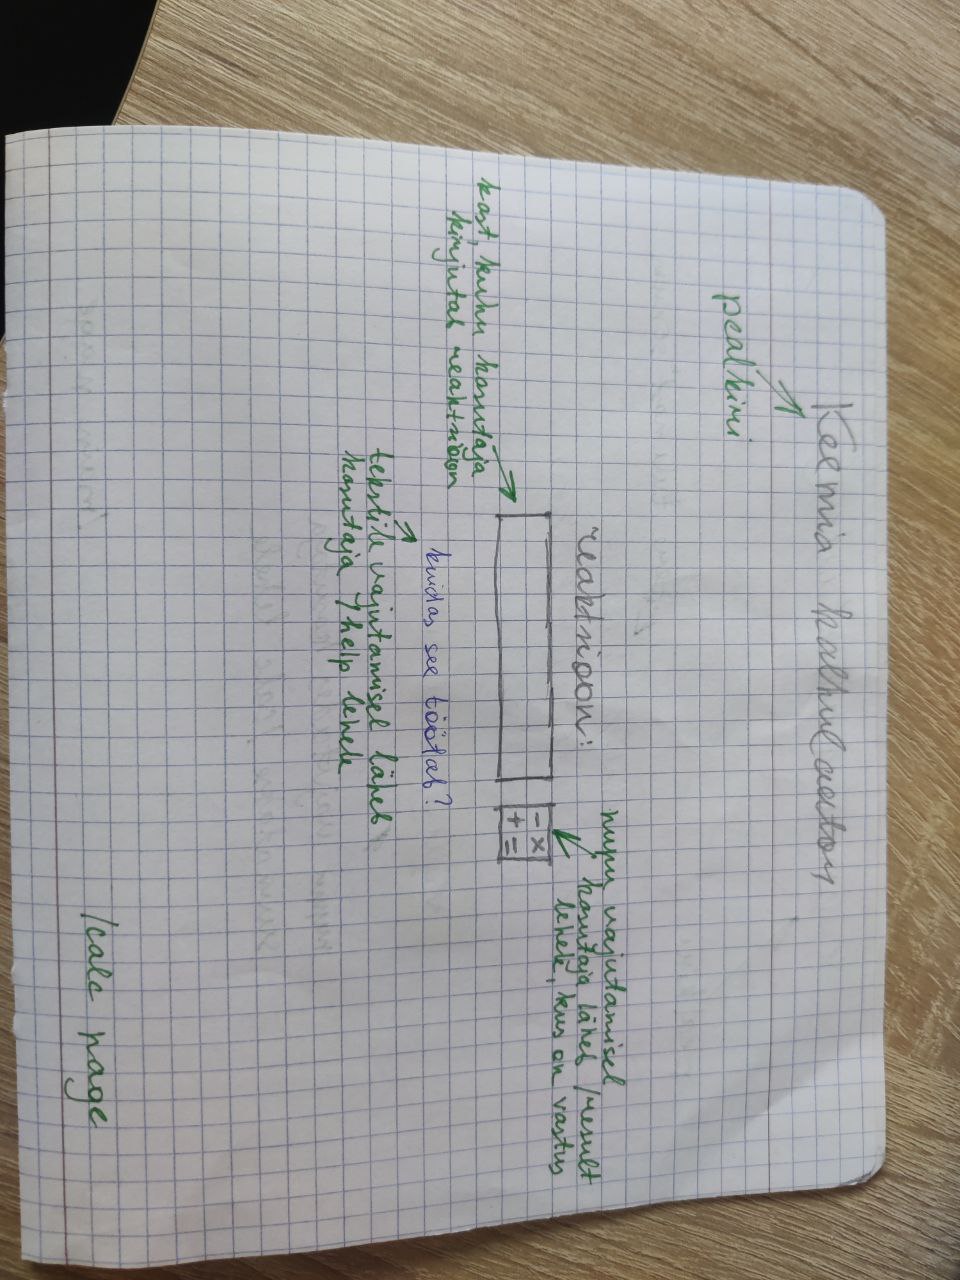 Keemia kalkulaator
pealkiri
nupu vajutamisel
kasutaja läheb /result
lehele, kus on vastus
reaktsioon:
- ×
+ =
kast, kuhu kasutaja
kirjutab reaktsioon
kuidas see töötab?
tekstile vajutamisel läheb
kasutaja /help lehele
/calc page